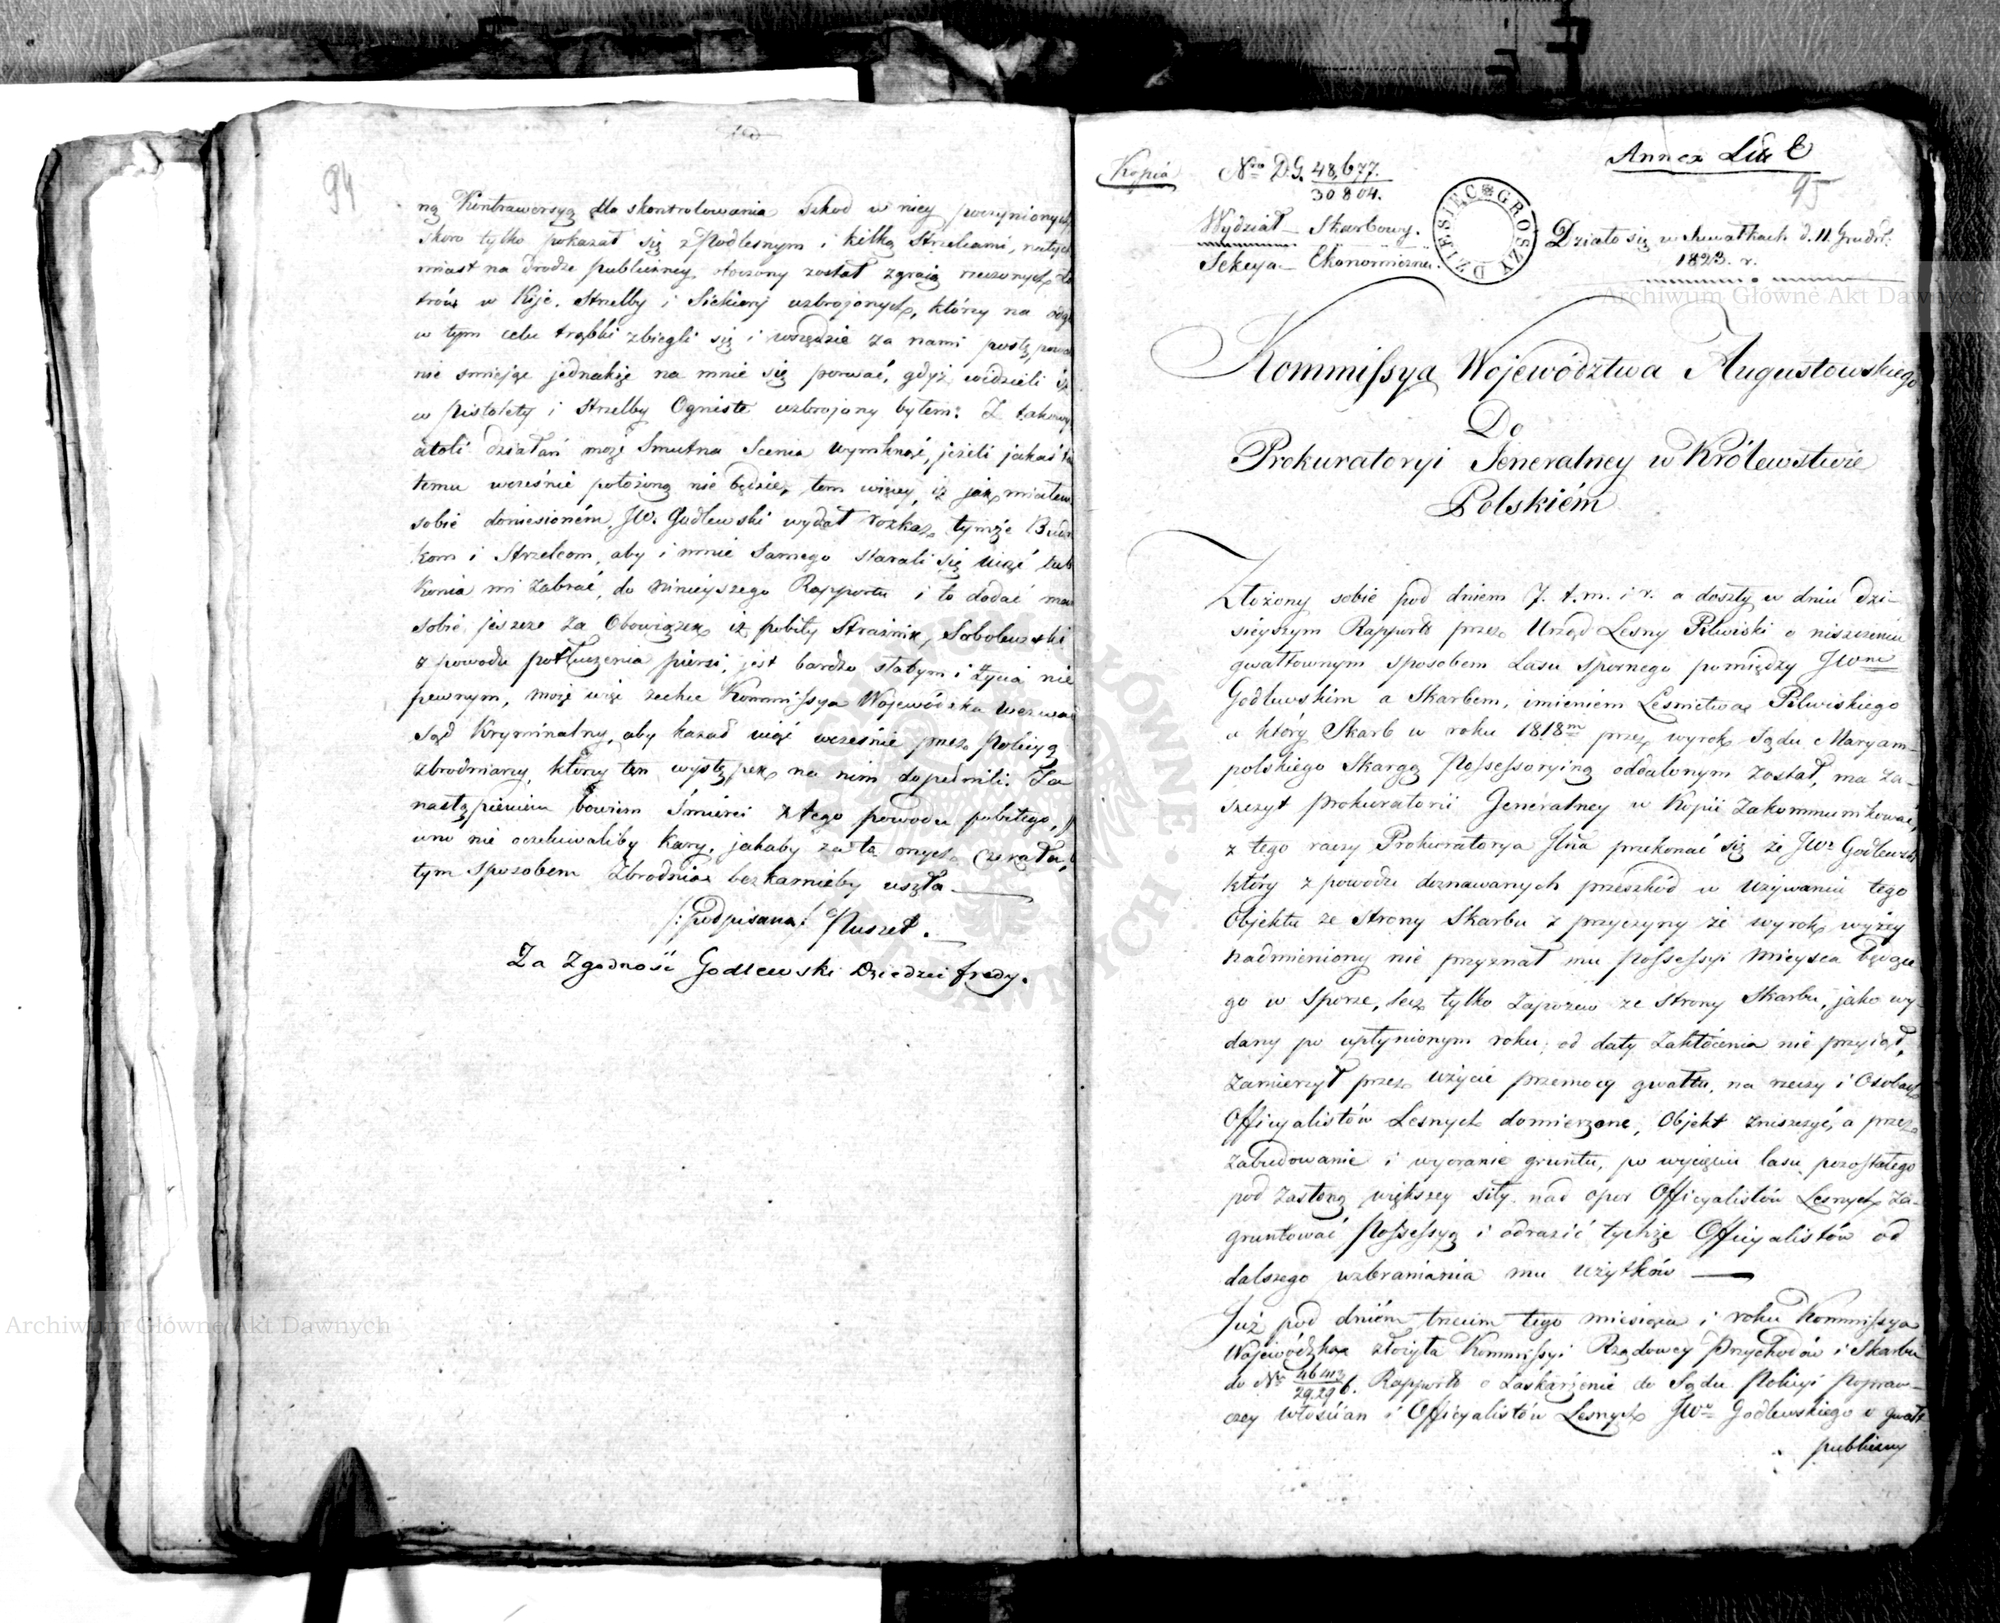 94
ną Kontrawersyą dla skontrolowania Szkod w niey poczynionych
skoro tylko pokazał się z Podlesnym i kilką Strzelcami, natych
miast na drodze publiczney, otoczony został zgraią rzeczonych
w Kije, Strzelby i Siekiery uzbrojonych, którzy na odgł
w tym celu trąbki zbiegli się i wszędzie za nami postę,
nie smiejąc jednakże na mnie się porwać, gdyż widzieli iż
w Pistolety i Strzelby Ogniste uzbrojony byłem: Z takowy
atoli działań może Smutna Scena wyniknąć, jeżeli jakaś
temu wcześnie położoną nie będzie, tem więcey, iż jak miałem
sobie doniesioném, JW. Godlewski wydał rozkaz tymże Bud
kom i Strzelcom, aby i mnie Samego starali się ująć lub
Konia mi zabrać, do ninieyszego Rapportu i to dodać mam
sobie jeszcze za Obowiązek iż pobity Strażnik Sobolewski
z powodu potłuczenia piersi, jest bardzo słabym i życia nie
pewnym, może więc zechce Kommissya Wojewódzka wezwać
Sąd Kryminalny, aby kazał ująć wcześnie przez Policyą
zbrodniarzy, którzy ten występek na nim dopełnili. Za
nastąpieniem bowiem Śmierci z tego powodu pobitego,
uno nie oczekiwaliby kary, jakaby za to onych czekała,
tym sposobem Zbrodnia bezkarnieby uszła
/:podpisano:/ Pluszet.
Za Zgodność Godlewski Dziedzic fredy.
Kopia
Nro D.G. 48,677.
30804.
Annex Lit C
95
Wydział Skarbowy.
Sekcya Ekonomiczna.
DZIESIĘC GROSZY
Działo się w Suwałkach d. 11 Grudn:
1823. r.
Kommissya Województwa Augustowskiego
Do
Prokuratoryi Jeneralney w Królewstwie
Polskiém
Złożony sobie pod dniem 7. t.m. i r. a doszły w dniu dzi-
sieyszym Rapport przez Urząd Lesny Pilwiski o niszczeniu
gwałtownym sposobem Lasu spornego pomiędzy JWm
Godlewskim a Skarbem, imieniem Lesnictwa Pilwiskiego
o który Skarb w roku 1818m przez wyrok Sądu Maryam-
polskiego Skargą Possessoryiną oddalonym został, ma za-
szczyt Prokuratorii Jeneralney w Kopii zakommunikować,
z tego raczy Prokuratorya Jlna przekonać się że JWr Godlewski
który z powodu doznawanych przeszkód w używaniu tego
Objektu ze Strony Skarbu z przyczyny że wyrok wyżey
nadmieniony nie przyznał mu Possessyi mieysca będące-
go w Sporze, lecz tylko zapozew ze Strony Skarbu, jako wy-
dany po upłynionym roku, od daty zakłócenia nie przyiął,
zamierzył przez użycie przemocy gwałtu, na rzeczy i Osobach
Officyalistów Lesnych domierzone, Objekt zniszczyć, a przez
zabudowanie i wyoranie gruntu, po wycięciu lasu, pozostałego
pod zasłoną większey siły nad opor Officyalistów Lesnych za-
gruntować Possessyą i odrazić tychże Officyalistów od
dalszego wzbraniania mu użytków
Już pod dniém trzecim tego miesiąca i roku Kommissya
Wojewódzka złożyła Kommissyi Rządowey Przychodów i Skarbu
do No 46412/29,296. Rapport o zaskarżenie do Sądu Policyi Popraw-
czey Włościan i Officyalistów Lesnych JWo Godlewskiego o gwałt
publiczny
Archiwum Główne Akt Dawnych
Archiwum Główne Akt Dawnych